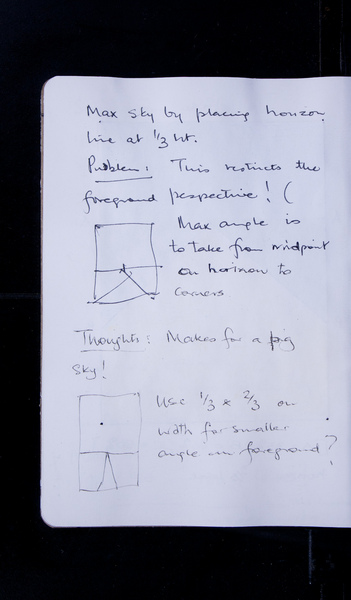 Max sky by placing horizon
line at 1/3 ht.
Problem: This restricts the
foreground perspective! (
Max angle is
to take from midpoint
on horizon to
corners
Thoughts: Makes for a big
sky!
Use 1/3 & 2/3 on
width for smaller
angle in foreground?